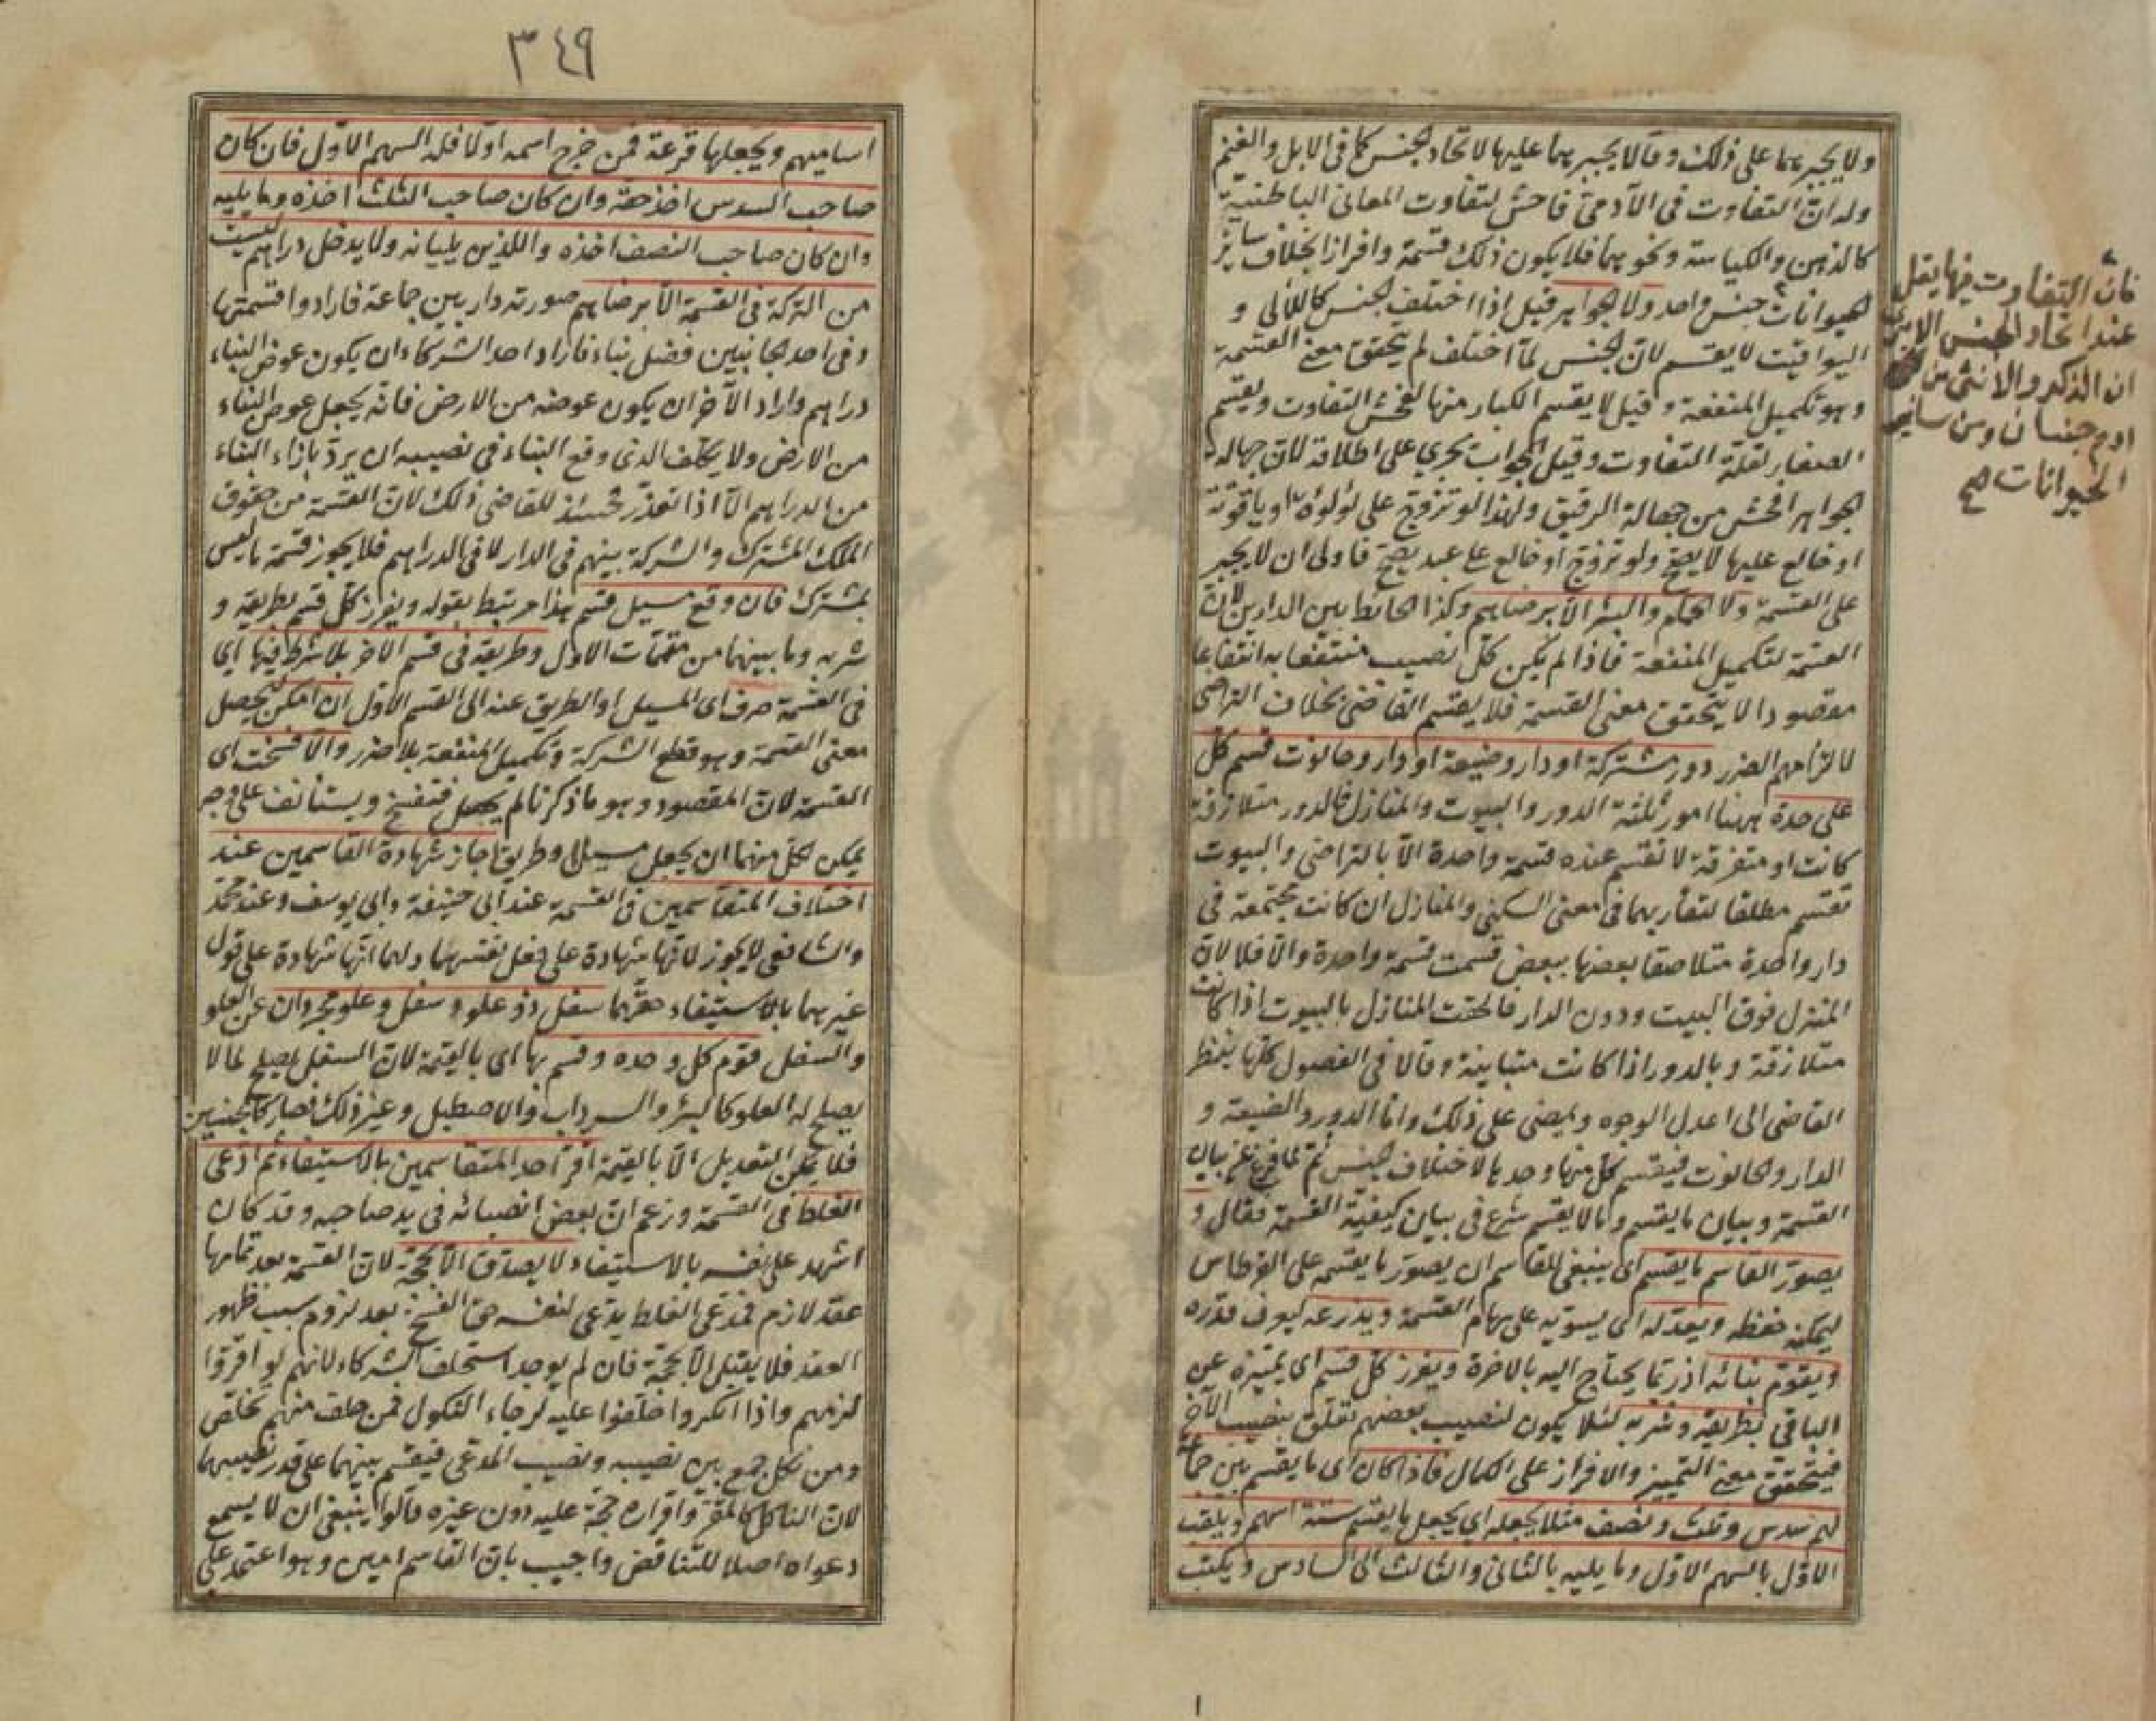 ولا يجبرهما على ذلك وقالا يجبرهما عليها لاتحاد الجنس كما في الابل والغنم
وله ان التفاوت في الآدمي فاحش لتفاوت المعاني الباطنية
كالذهن والكياسة ونحوهما فلا يكون ذلك قسمة وافرازا بخلاف سائر
الحيوانات جنس واحد ولا الجواهر قيل اذا اختلف الجنس كاللآلي و
اليواقيت لا يقسم لان الجنس لما اختلف لم يتحقق معنى القسمة
وهو تكميل المنفعة وقيل لا يقسم الكبار منها لفحش التفاوت ويقسم
الصغار لقلة التفاوت وقيل الجواب يجري على اطلاقه لان جهالة
الجواهر افحش من جهالة الرقيق ولهذا لو تزوج على لؤلؤة او ياقوتة
او خالع عليها لا يصح ولو تزوج او خالع على عبد يصح فاولى ان لا يجبر
على القسمة ولا الحمام والبئر الا برضاهم وكذا الحائط بين الدارين لان
القسمة لتكميل المنفعة فاذا لم يكن كل نصيب منتفعا به انتفاعا
مقصودا لا يتحقق معنى القسمة فلا يقسم القاضي بخلاف التراضي
لالتزامهم الضرر دور مشتركة او دار وضيعة او دار وحانوت قسم كل
على حدة ههنا امور ثلثة الدور والبيوت والمنازل فالدور متلازقة
كانت او متفرقة لا تقسم عنده قسمة واحدة الا بالتراضي والبيوت
تقسم مطلقا لتقاربهما في معنى السكنى والمنازل ان كانت مجتمعة في
دار واحدة متلاصقا بعضها ببعض قسمت قسمة واحدة والا فلا لان
المنزل فوق البيت ودون الدار فالحقت المنازل بالبيوت اذا كانت
متلازقة وبالدور اذا كانت متباينة وقالا في الفصول كلها ينظر
القاضي الى اعدل الوجوه ويمضي على ذلك واما الدور والضيعة و
الدار والحانوت فيقسم كل منها وحدها لاختلاف الجنس ثم لما فرغ عن بيان
القسمة وبيان ما يقسم وما لا يقسم شرع في بيان كيفية القسمة فقال و
يصور القاسم ما يقسم اي ينبغي للقاسم ان يصور ما يقسمه على القرطاس
ليمكنه حفظه ويعدله اي يسويه على سهام القسمة ويذرعه ليعرف قدره
ويقوم بنائه اذ ربما يحتاج اليه بالاخرة ويفرز كل قسم اي يميزه عن
الباقي بطريقه وشربه لئلا يكون لنصيب بعضهم تعلق بنصيب الآخر
فيتحقق معنى التمييز والافراز على الكمال فاذا كان اي ما يقسم بين جماعة
لهم سدس وثلث ونصف مثلا يجعله اي يجعل ما يقسم ستة اسهم ويلقب
الاول بالسهم الاول وما يليه بالثاني والثالث الى السادس ويكتب
فان التفاوت فيها يقل
عند اتحاد الجنس الا يرى
ان الذكر والانثى من بني
ادم جنسان ومن سائر
الحيوانات صح
٣٤٩
اساميهم ويجعلها قرعة فمن خرج اسمه اولا فله السهم الاول فان كان
صاحب السدس اخذ حقه وان كان صاحب الثلث اخذه وما يليه
وان كان صاحب النصف اخذه واللذين يليانه ولا يدخل دراهم ليست
من التركة في القسمة الا برضاهم صورته دار بين جماعة فارادوا قسمتها
وفي احد الجانبين فضل بناء فاراد احد الشركاء ان يكون عوض البناء
دراهم واراد الآخر ان يكون عوضه من الارض فانه يجعل عوض البناء
من الارض ولا يكلف الذي وقع البناء في نصيبه ان يرد بازاء البناء
من الدراهم الا اذا تعذر فحينئذ للقاضي ذلك لان القسمة من حقوق
الملك المشترك والشركة بينهم في الدار لا في الدراهم فلا يجوز قسمة ما ليس
بمشترك فان وقع مسيل قسم هذا مرتبط بقوله ويفرز كل قسم بطريقه و
شربه وما بينهما من تتمات الاول وطريقه في قسم الاخر بلا شرط فيها اي
في القسمة صرف اي المسيل او الطريق عنه الى القسم الاول ان امكن ليحصل
معنى القسمة وهو قطع الشركة وتكميل المنفعة بلا ضرر والا فسخت اي
القسمة لان المقصود وهو ما ذكرنا لم يحصل فتفسخ ويستأنف على وجه
يمكن لكل منهما ان يجعل مسيلا وطريقا جاز شهادة القاسمين عند
اختلاف المتقاسمين في القسمة عند ابي حنيفة وابي يوسف وعند محمد
والشافعي لا يجوز لانها شهادة على فعل نفسهما ولهما انها شهادة على قول
غيرهما بالاستيفاء حقهما سفل ذو علو وسفل وعلو مجردان عن العلو
والسفل قوم كل وحده وقسم بها اي بالقيمة لان السفل يصلح لما لا
يصلح له العلو كالبئر والسرداب والاصطبل وغير ذلك فصار كالجنسين
فلا يمكن التعديل الا بالقيمة اقر احد المتقاسمين بالاستيفاء ثم ادعى
الغلط في القسمة وزعم ان بعض انصبائه في يد صاحبه وقد كان
اشهد على نفسه بالاستيفاء لا يصدق الا بحجة لان القسمة بعد تمامها
عقد لازم فمدعي الغلط يدعي لنفسه حق الفسخ بعد لزوم سبب ظهور
العقد فلا يقبل الا بحجة فان لم يوجد استحلف الشركاء لانهم لو اقروا
لزمهم واذا انكروا حلفوا عليه لرجاء النكول فمن حلف منهم تخلص
ومن نكل جمع بين نصيبه ونصيب المدعي فيقسم بينهما على قدر نصيبهما
لان الناكل كالمقر واقراره حجة عليه دون غيره قالوا ينبغي ان لا يسمع
دعواه اصلا للتناقض واجيب بان القاسم امين وهو اعتمد على